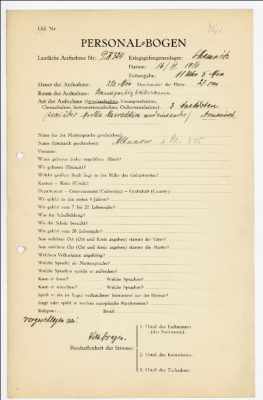 Lfd. Nr
PERSONAL-BOGEN
Lautliche Aufnahme Nr. PK 734 Kriegsgefangenenlager: Chemnitz
Datum: 1916
Zeitangabe: 11 Uhr 5 Min
Dauer der Aufnahme: 2 1/2 Min Durchmesser der Platte: 27 cm
Raum der Aufnahme:
Art der Aufnahme (Sprechaufnahme, Gesangsaufnahme,
Choraufnahme, Instrumentenaufnahme, Orchesteraufnahme): 3 Anekdoten
Mulla Nasreddin Armenisch
Name (in der Muttersprache geschrieben):
Name (lateinisch geschrieben):
Vorname:
Wann geboren (oder ungefähres Alter)?
Wo geboren (Heimat)?
Welche größere Stadt liegt in der Nähe des Geburtsortes?
Kanton — Kreis (Ujedz)
Department — Gouvernement (Gubernija) — Grafschaft (County)
Wo gelebt in den ersten 6 Jahren?
Wo gelebt vom 7. bis 20. Lebensjahr?
Was für Schulbildung?
Wo die Schule besucht?
Wo gelebt vom 20. Lebensjahr?
Aus welchem Ort (Ort und Kreis angeben) stammt der Vater?
Aus welchem Ort (Ort und Kreis angeben) stammt die Mutter?
Welchem Volksstamm angehörig?
Welche Sprache als Muttersprache?
Welche Sprachen spricht er außerdem?
Kann er lesen? Welche Sprachen?
Kann er schreiben? Welche Sprachen?
Spielt er ein im Lager vorhandenes Instrument aus der Heimat?
Singt oder spielt er moderne europäische Musikweisen?
Religion: Beruf:
vorgeschlagen von:
Beschaffenheit der Stimme:
1. Urteil des Fachmannes
(des Assistenten)
2. Urteil des Kommissars:
3. Urteil des Technikers: